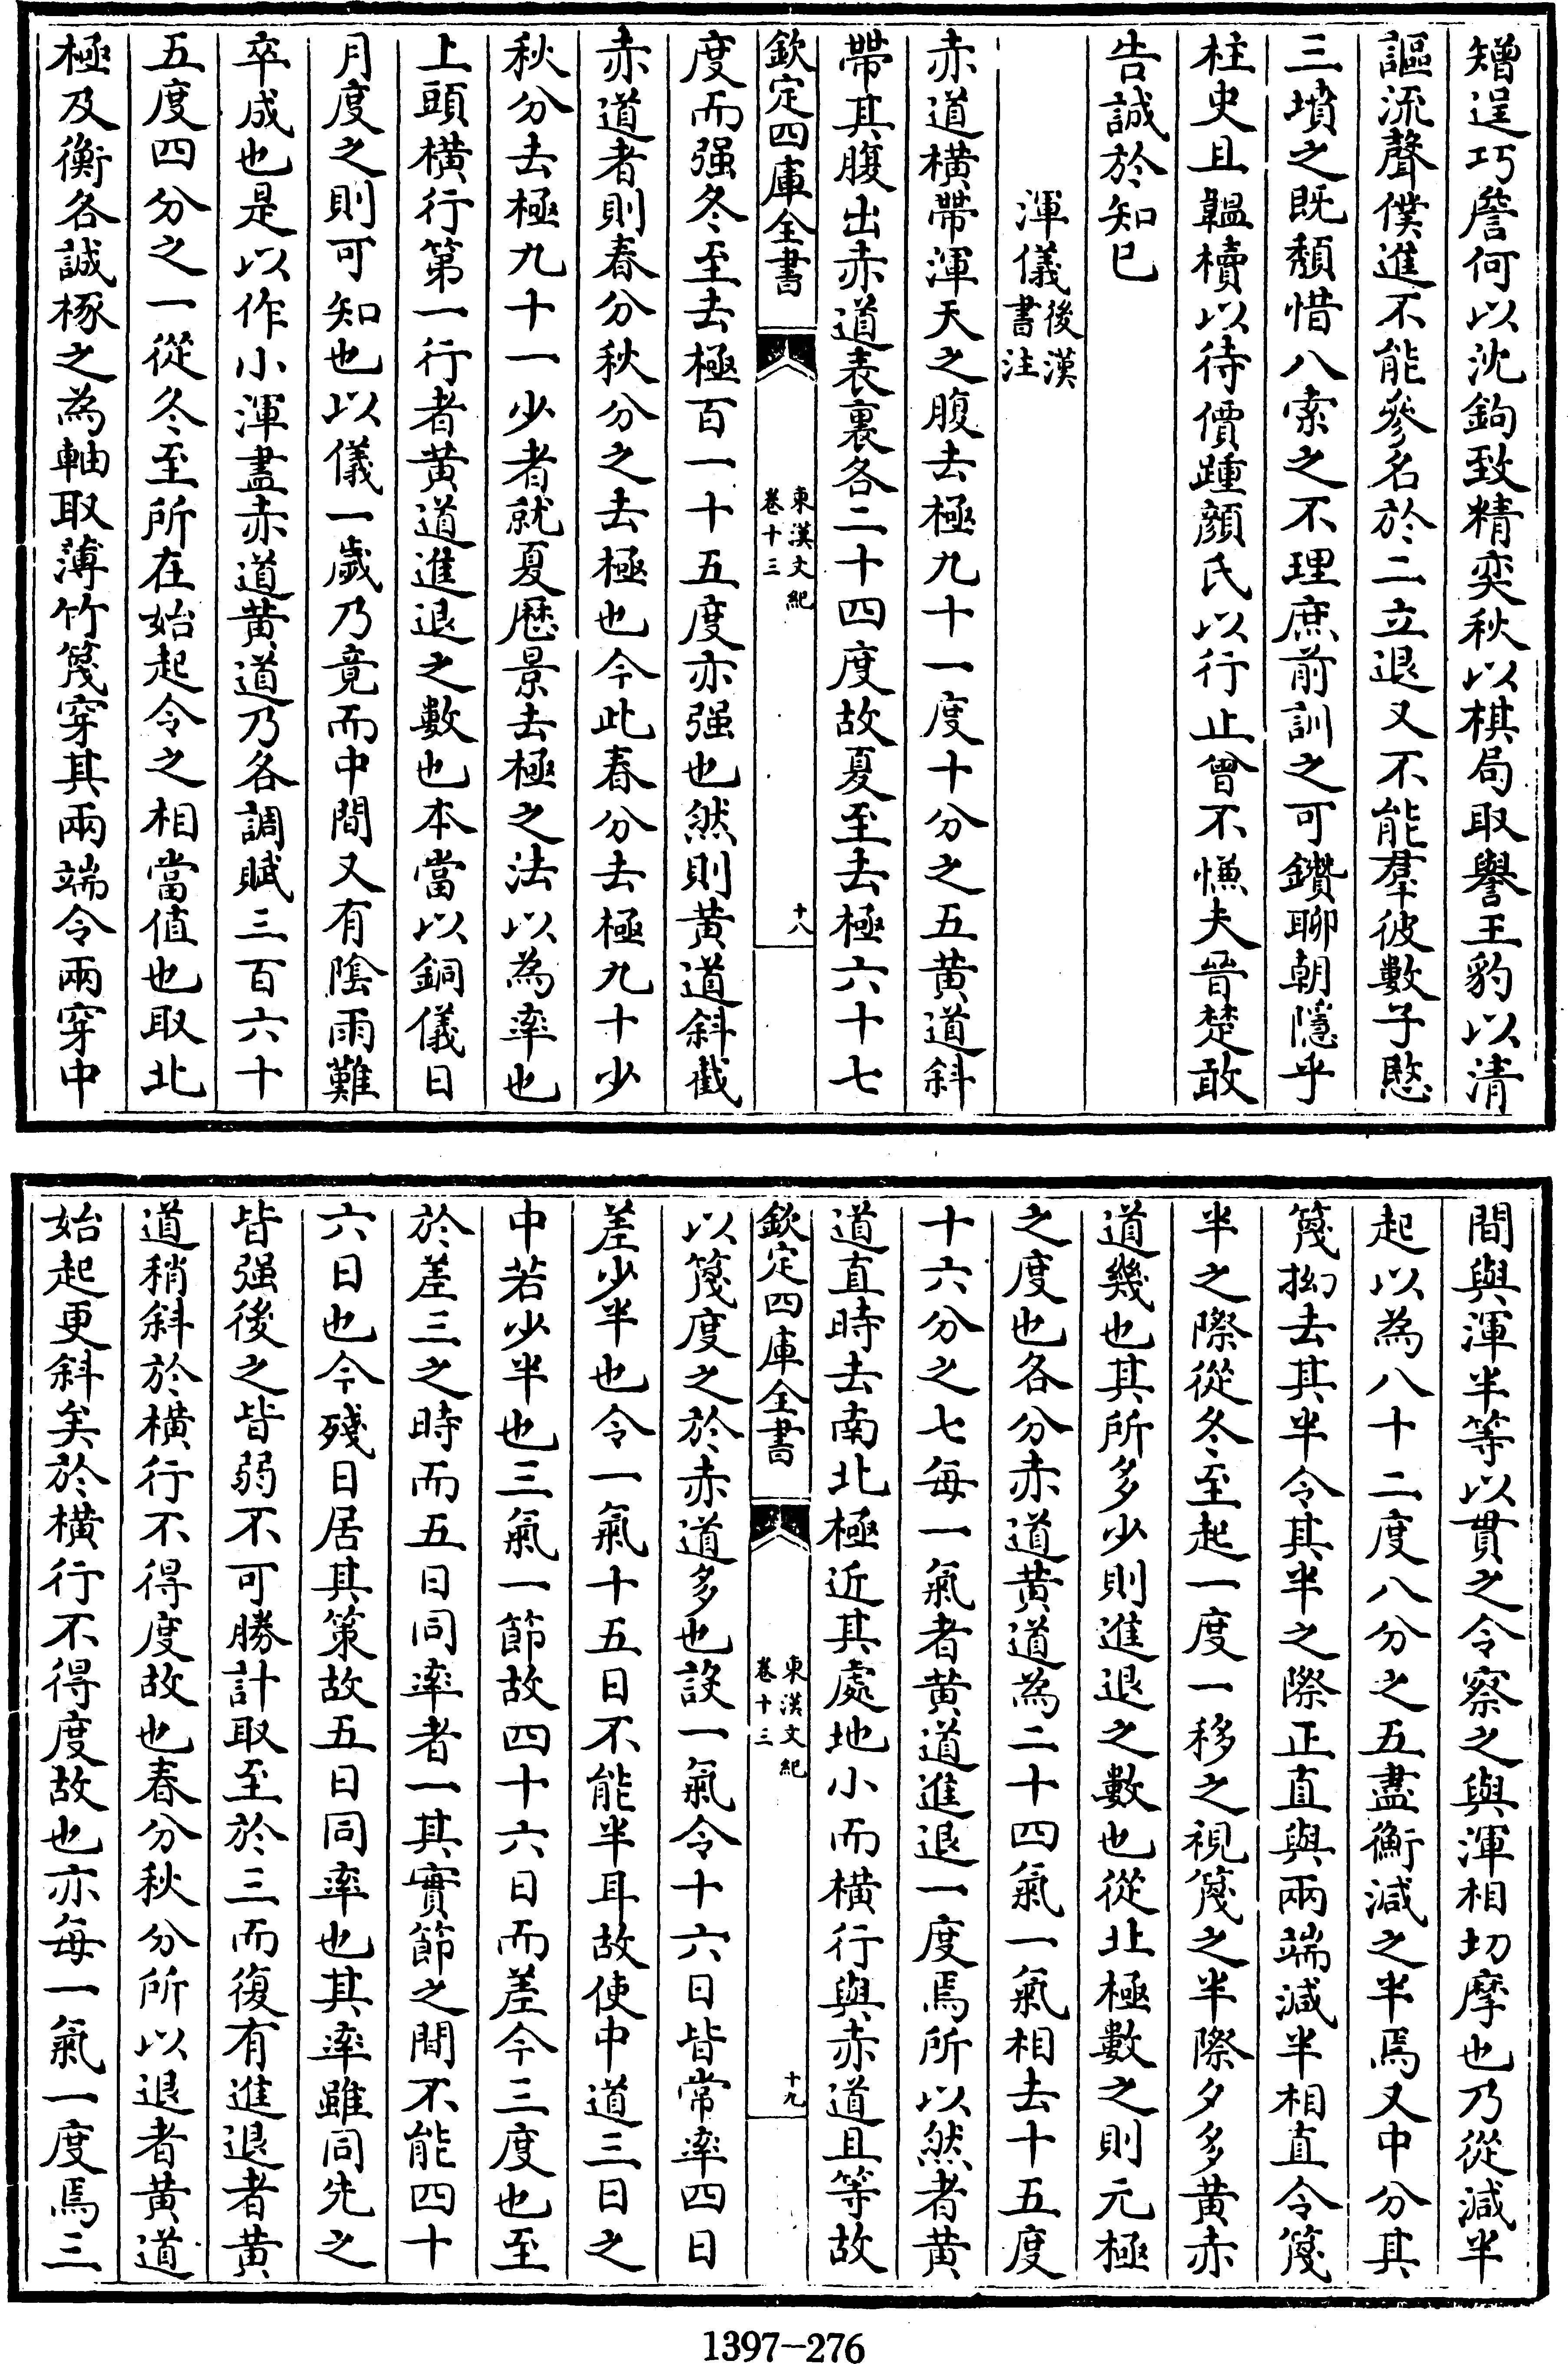 矰逞巧詹何以沈鉤致精奕秋以棋局取譽王豹以清
謳流聲僕進不能參名於二立退又不能羣彼數子愍
三墳之既頽惜八索之不理庶前訓之可鑽聊朝隱乎
柱史且韞櫝以待價踵顔氏以行止曾不慊夫晉楚敢
告誠於知已
渾儀後漢書注
赤道橫帶渾天之腹去極九十一度十分之五黄道斜
帶其腹出赤道表裏各二十四度故夏至去極六十七
欽定四庫全書
東漢文紀
卷十三
十八
度而强冬至去極百一十五度亦强也然則黄道斜截
赤道者則春分秋分之去極也今此春分去極九十少
秋分去極九十一少者就夏厯景去極之法以為率也
上頭橫行第一行者黄道進退之數也本當以銅儀日
月度之則可知也以儀一歲乃竟而中間又有陰雨難
卒成也是以作小渾盡赤道黄道乃各調賦三百六十
五度四分之一從冬至所在始起令之相當值也取北
極及衡各誠椓之為軸取薄竹篾穿其兩端令兩穿中
間與渾半等以貫之令察之與渾相切摩也乃從減半
起以為八十二度八分之五盡衡減之半焉又中分其
篾拗去其半令其半之際正直與兩端減半相直令篾
半之際從冬至起一度一移之視篾之半際夕多黄赤
道幾也其所多少則進退之數也從北極數之則元極
之度也各分赤道黄道為二十四氣一氣相去十五度
十六分之七每一氣者黄道進退一度焉所以然者黄
道直時去南北極近其處地小而橫行與赤道且等故
欽定四庫全書
東漢文紀
卷十三
十九
以篾度之於赤道多也設一氣令十六日皆常率四日
差少半也令一氣十五日不能半耳故使中道三日之
中若少半也三氣一節故四十六日而差今三度也至
於差三之時而五日同率者一其實節之間不能四十
六日也今殘日居其策故五日同率也其率雖同先之
皆强後之皆弱不可勝計取至於三而復有進退者黄
道稍斜於橫行不得度故也春分秋分所以退者黄道
始起更斜矣於橫行不得度故也亦每一氣一度焉三
1397-276